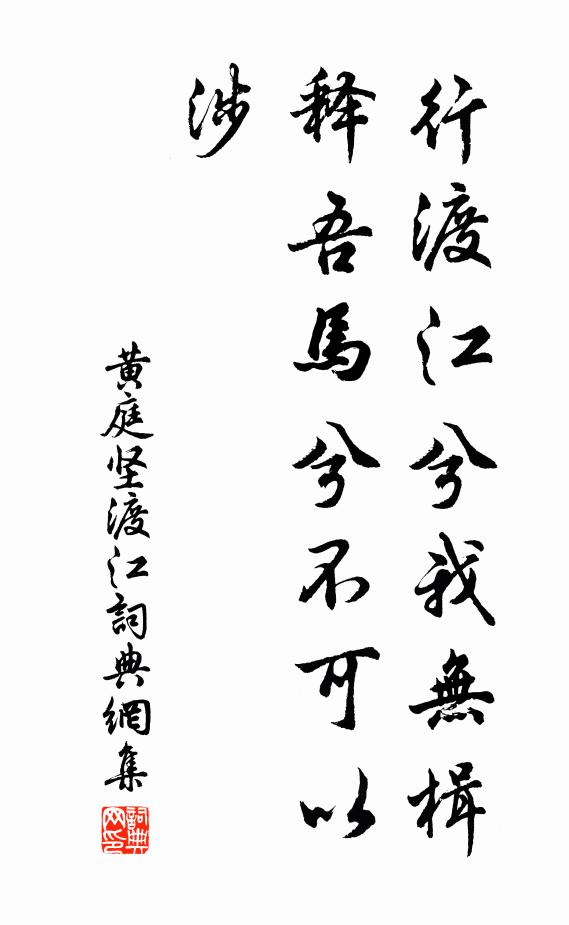 行渡江兮我無楫
释吾馬兮不可以
涉
黄庭坚渡江詞典網集
詞典网印